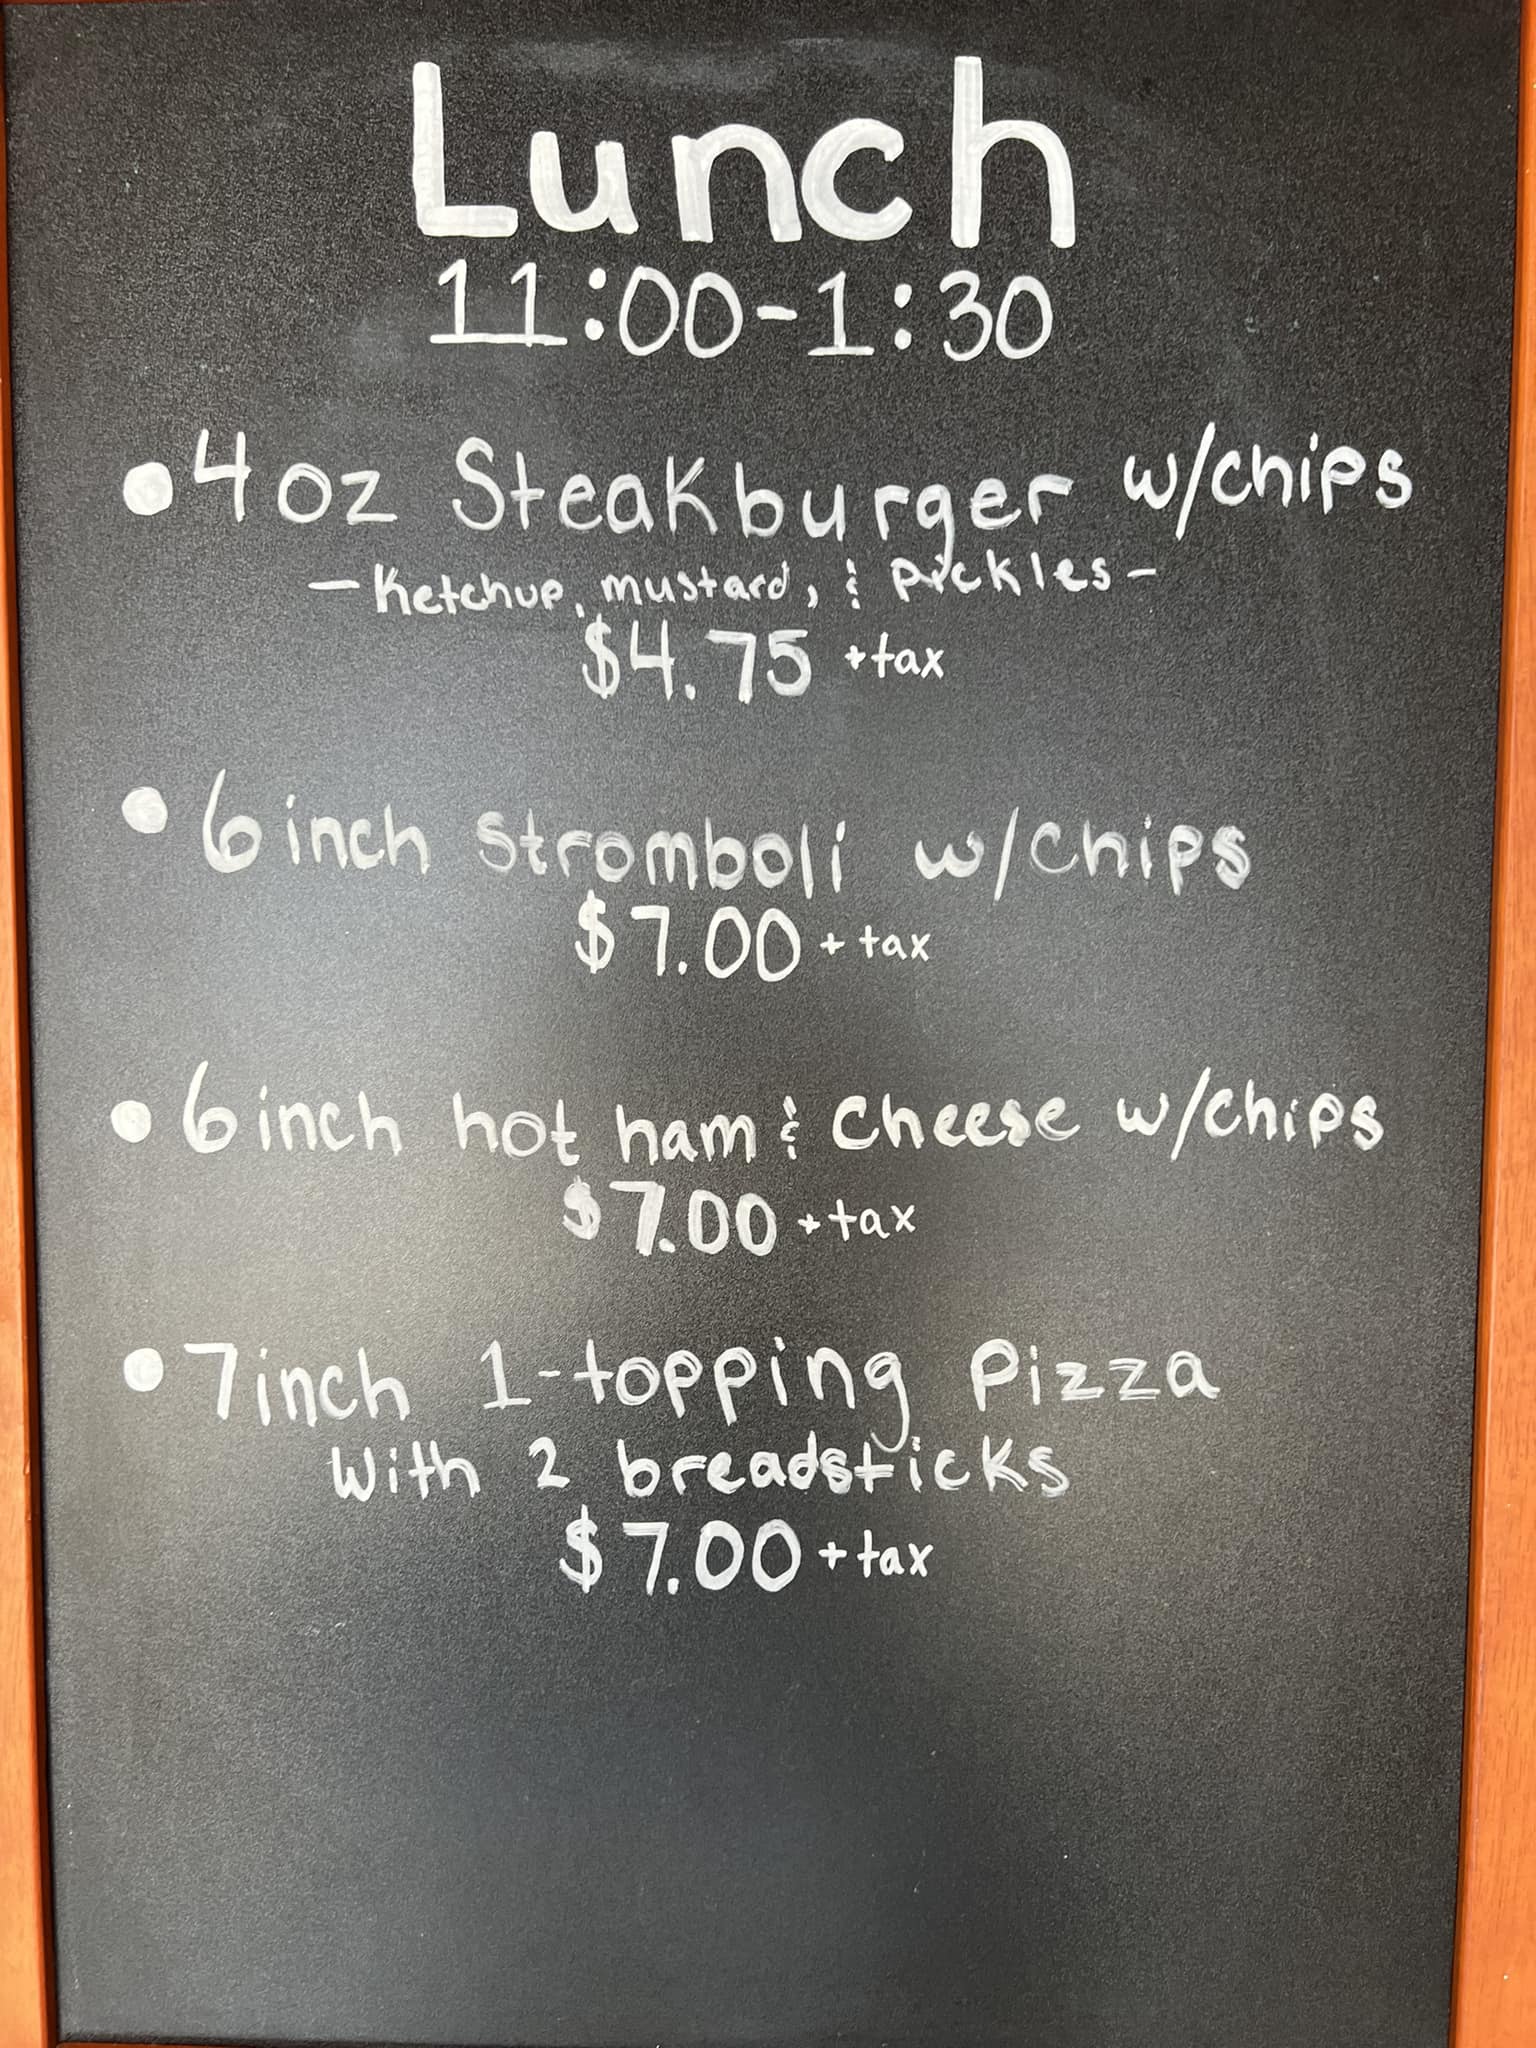 Lunch
11:00-1:30
• 4 oz Steakburger w/chips
- Ketchup, mustard, & Pickles -
$4.75 + tax
• 6 inch stromboli w/chips
$7.00 + tax
• 6 inch hot ham & Cheese w/chips
$7.00 + tax
• 7 inch 1-topping Pizza
With 2 breadsticks
$7.00 + tax